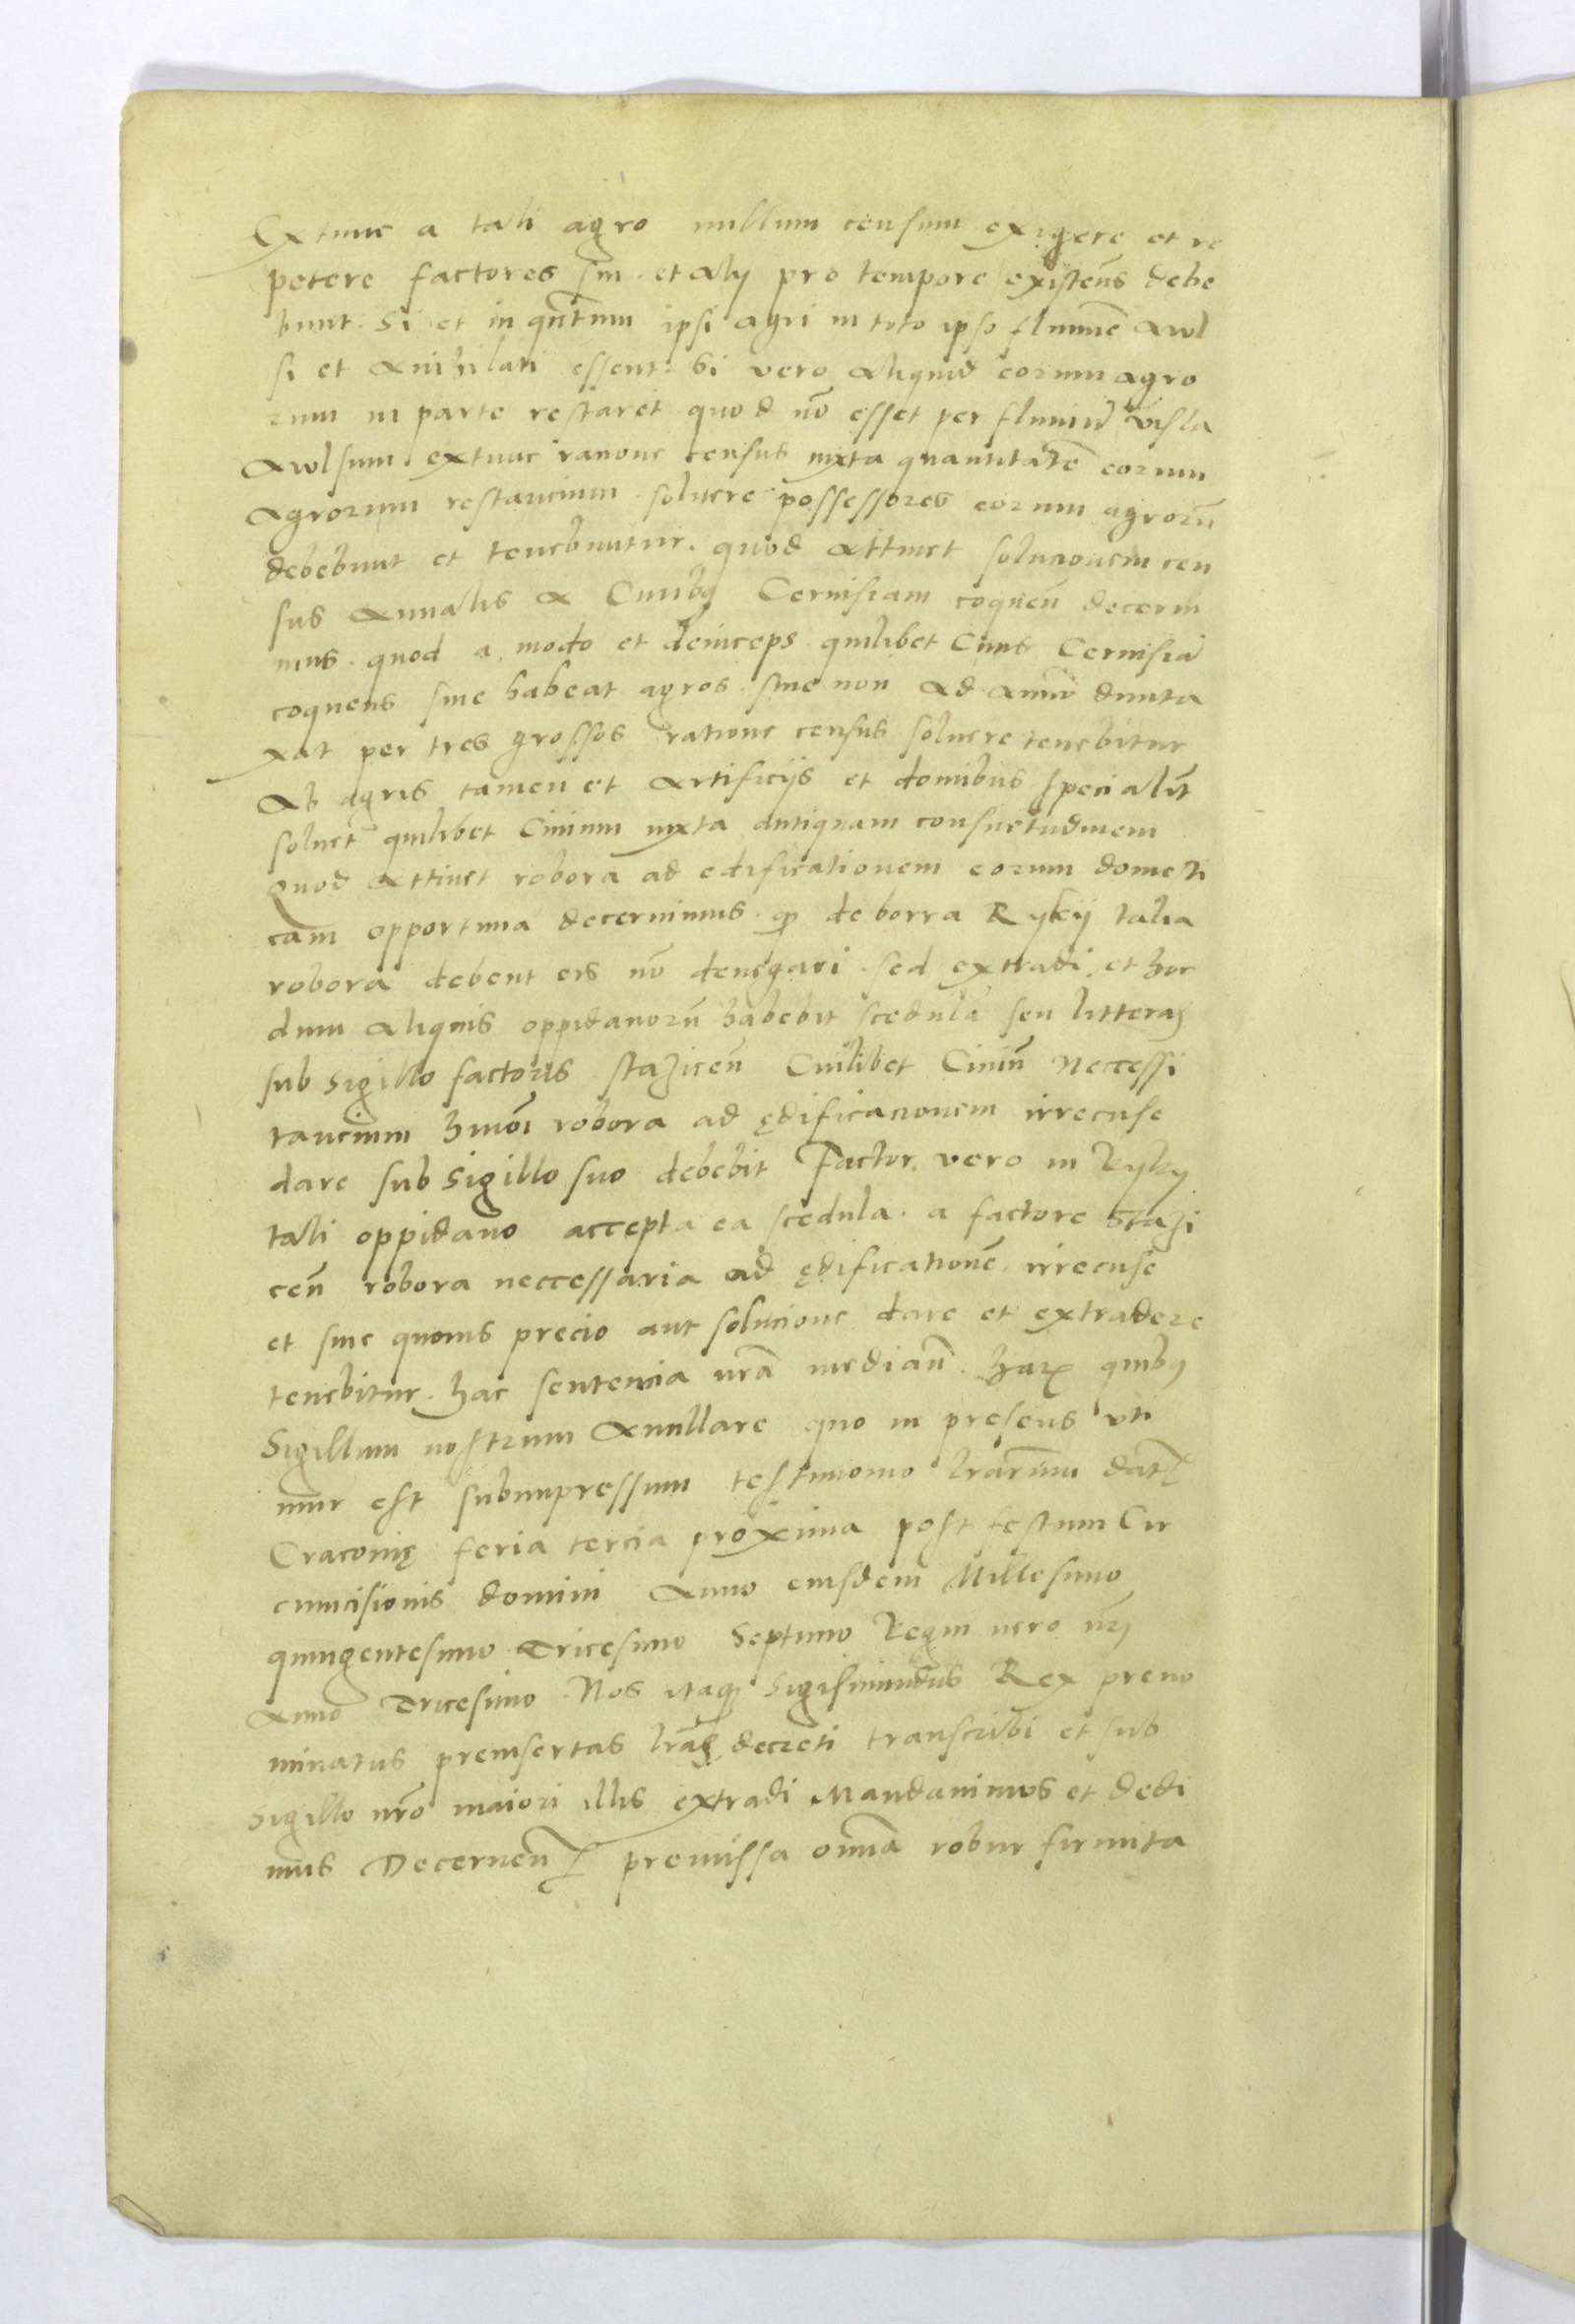 Extunc a tali agro nullum censum exigere et re
petere factores sui et alij pro tempore existeñs debe
bunt. Si et in qñtum ipsi agri in toto ipso fluminē awl
si et anihilati essent: Si vero aliquid eorum agro
rum in parte restaret quod nõ esset per fluuiũ visla
awlsum. extunc racione census iuxta quantitatē eorum
agrorum restancium soluere possessores eorum agrorũ
debebunt et tenebuntur. quod attinet solucionem cen
sus annalis a Ciuibq Ceruisiam coqueñ decerni
mus. quod a modo et deinceps quilibet Ciuis Ceruisiã
coquens siue habeat agros siue non ad annũ dunta
xat per tres grossos ratione census soluere tenebitur
Ab agris tamen et artificijs et domibus specialit̃
soluet quilibet Ciuium iuxta antiquam consuetudinem
Quod attinet robora ad edificationem eorum domesti
cam opportuna decernimus. qp de borra Rykij talia
robora debent eis nõ denegari. sed extradi et hoc
dum aliquis oppidanorũ habebit scedulã seu litteras
sub sigillo factoris staziceñ Cuilibet Ciuiũ Necessi
tancium hmõi robora ad ędificacionem irrecuse
dare sub Sigillo suo debebit Factor vero in Ryky
tali oppidano accepta ea scedula. a factore Stazi
ceñ robora neccessaria ad ędificationē irrecuse
et sine quouis precio aut solucione dare et extradere
tenebitur. hac sentencia nrã mediañ. harꝝ quibq
Sigillum nostrum Annullare quo in presens vti
mur est subimpressum testimonio lrarũm datꝭ
Cracouię feria tercia proxima post festum Cir
cumcisionis domini Anno eiusdem Millesimo
quingentesimo Tricesimo Septimo Regni vero nr̃i
Anno Tricesimo. Nos itaqꝫ Sigismundus Rex preno
minatus preinsertas lrãs decreti transcribi et sub
Sigillo nrõ maiori illis extradi Mandauimus et dedi
mus Decerneñꝭ premissa omĩa robur firmita